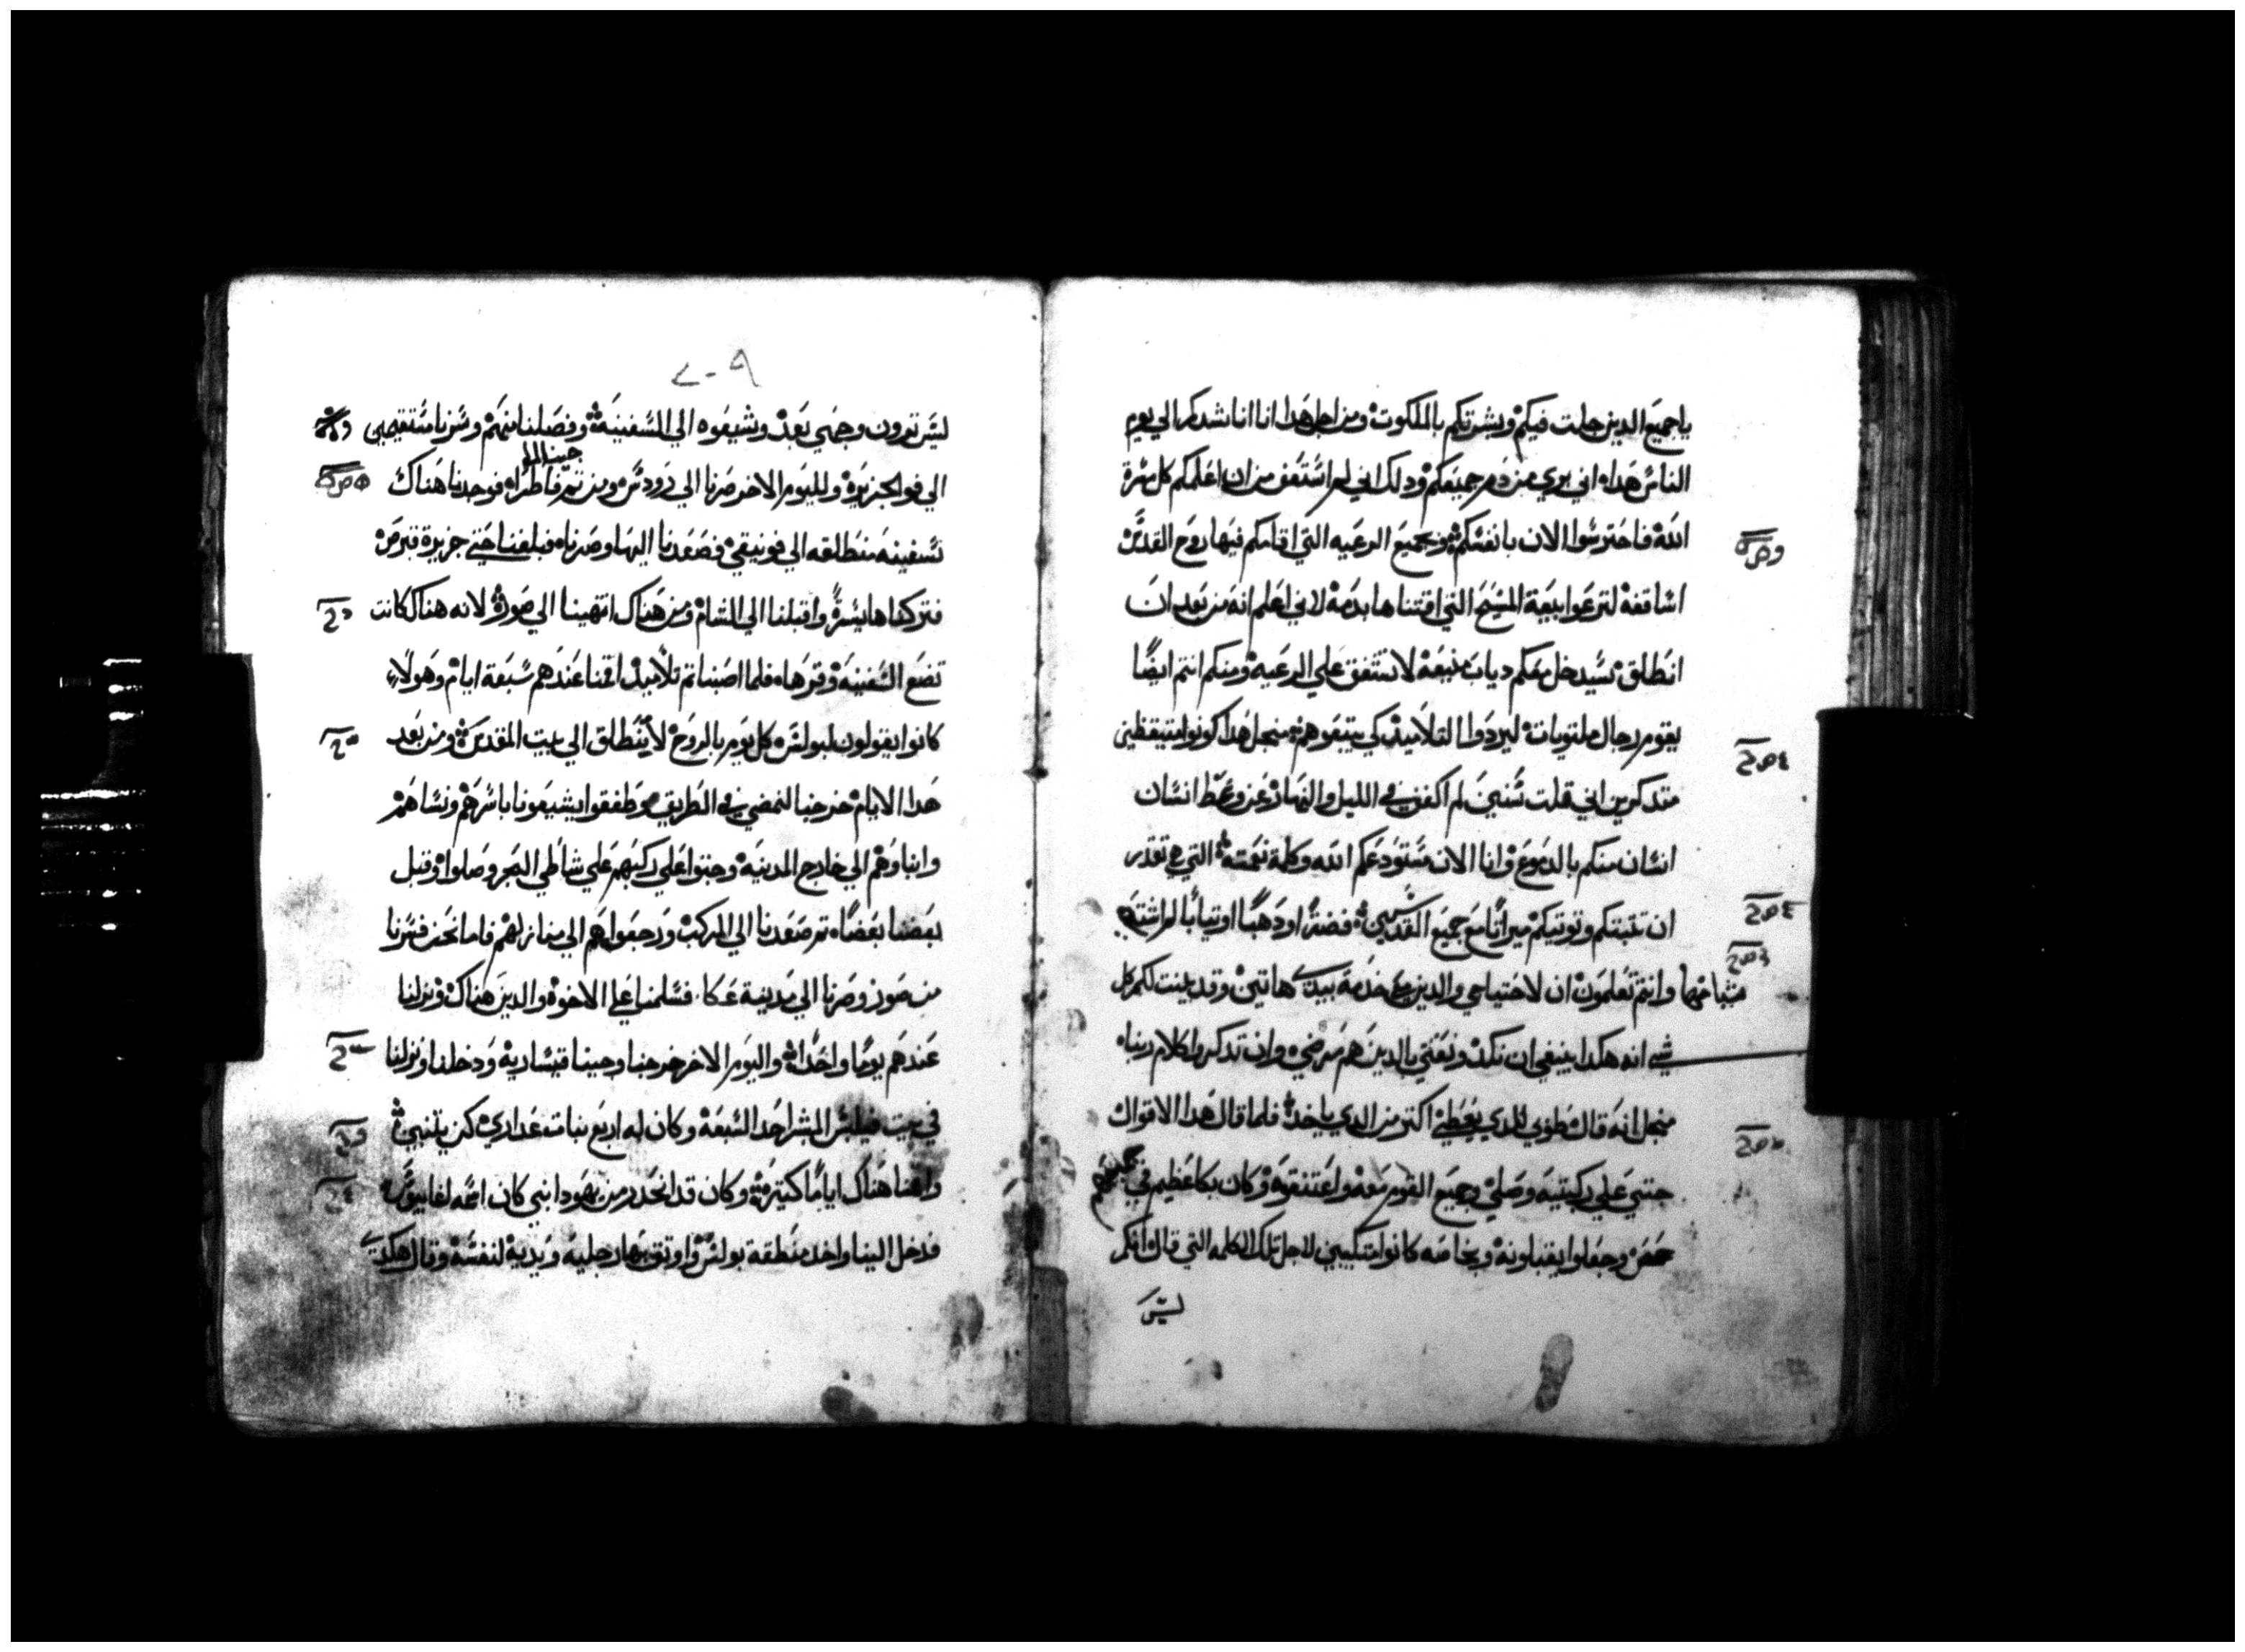 ياجميع الدين جلت فيكم وبشرتكم بالملكوت ومن اجل هدا انا اناشدكم الي يوم
الناس هدا اني بري من دم جميعكم ودلك اني لم استعف من ان اعلمكم كل مسرة
الله فاحترسوا الان بانفسكم وبجميع الرعيه التي اقامكم فيها روح القدس
اساقفة لترعوا بيعة المسيح التي اقتناها بدمه لاني اعلم انه من بعد ان
انطلق سيدخل معكم دياب منيعه لا تشفق علي الرعيه ومنكم انتم ايضا
يقوم رجال ملتويات ليردوا التلاميد كي يتبعوهم منجل هدا كونوا متيقظين
متدكرين اني قلت سنين لم اكفف في الليل والنهار عن وعظ انسان
انسان منكم بالدموع وانا الان مستودعكم الله وكلمة نعمته التي هي تقدر
ان تتبتكم وتوتيكم ميراثا مع جميع القديسين فضة او دهبا او تيابا لم اشته
وانتم تعلمون ان لاحتياجي والدين معي خدمة يدي هاتين وقد بينت لكم كل
شي انه هكدا ينبغي ان نكد ونعتني بالدين هم مرضي وان تدكروا كلام ربنا
منجل انه قال طوبي للدي يعطي اكتر من الدي ياخد فلما قال هدا الاقوال
جتي علي ركبتيه وصلي وجميع القوم معه واعتنقوه وكان بكا عظيم في جميعهم
وجعلوا يقبلونه وبخاصه كانوا متكيبين لاجل تلك الكلمه التي قال انكم
ليس
٢٠٩
ليس ترون وجهي بعد وشيعوه الي السفينة وفصلنا منهم وسرنا مستقيمين
الي قو الجزيره ولليوم الاخر صرنا الي رودس ومن تم فاطرا فوجدنا هناك
سفينه منطلقه الي فونيقي فصعدنا اليها وصرنا فبلغنا حتي جزيرة قبرص
فتركناها يسرة واقبلنا الي الشام ومن هناك انتهينا الي صور لانه هناك كانت
تضع السفينه وقرها فلما اصبنا تم تلاميد اقمنا عندهم سبعة ايام وهولاء
كانوا يقولون لبولس كل يوم بالروح لا ينطلق الي بيت المقدس ومن بعد
هدا الايام خرجنا لنمضي في الطريق وطفقوا يشيعونا باسرهم ونساهم
وابناوهم الي خارج المدينه وجتوا علي ركبهم علي شاطي البحر وصلوا وقبل
بعضنا بعضا تم صعدنا الي المركب ورجعوا هم الي منازلهم فاما نحن فسرنا
من صور وصرنا الي مدينة عكا فسلمنا علي الاخوة والدين هناك ونزلنا
عندهم يوما واحدا واليوم الاخر خرجنا وجينا قيساريه ودخلنا ونزلنا
في بيت فيلبس المبشر احد السبعه وكان له اربع بنات عداري كن يتنبين
واقمنا هناك اياما كتيره وكان قد انحدر من يهودا نبي كان اسمه اغابوس
فدخل الينا واخد منطقة بولس واوتق بها رجليه ويديه لنفسه وقال هكدي